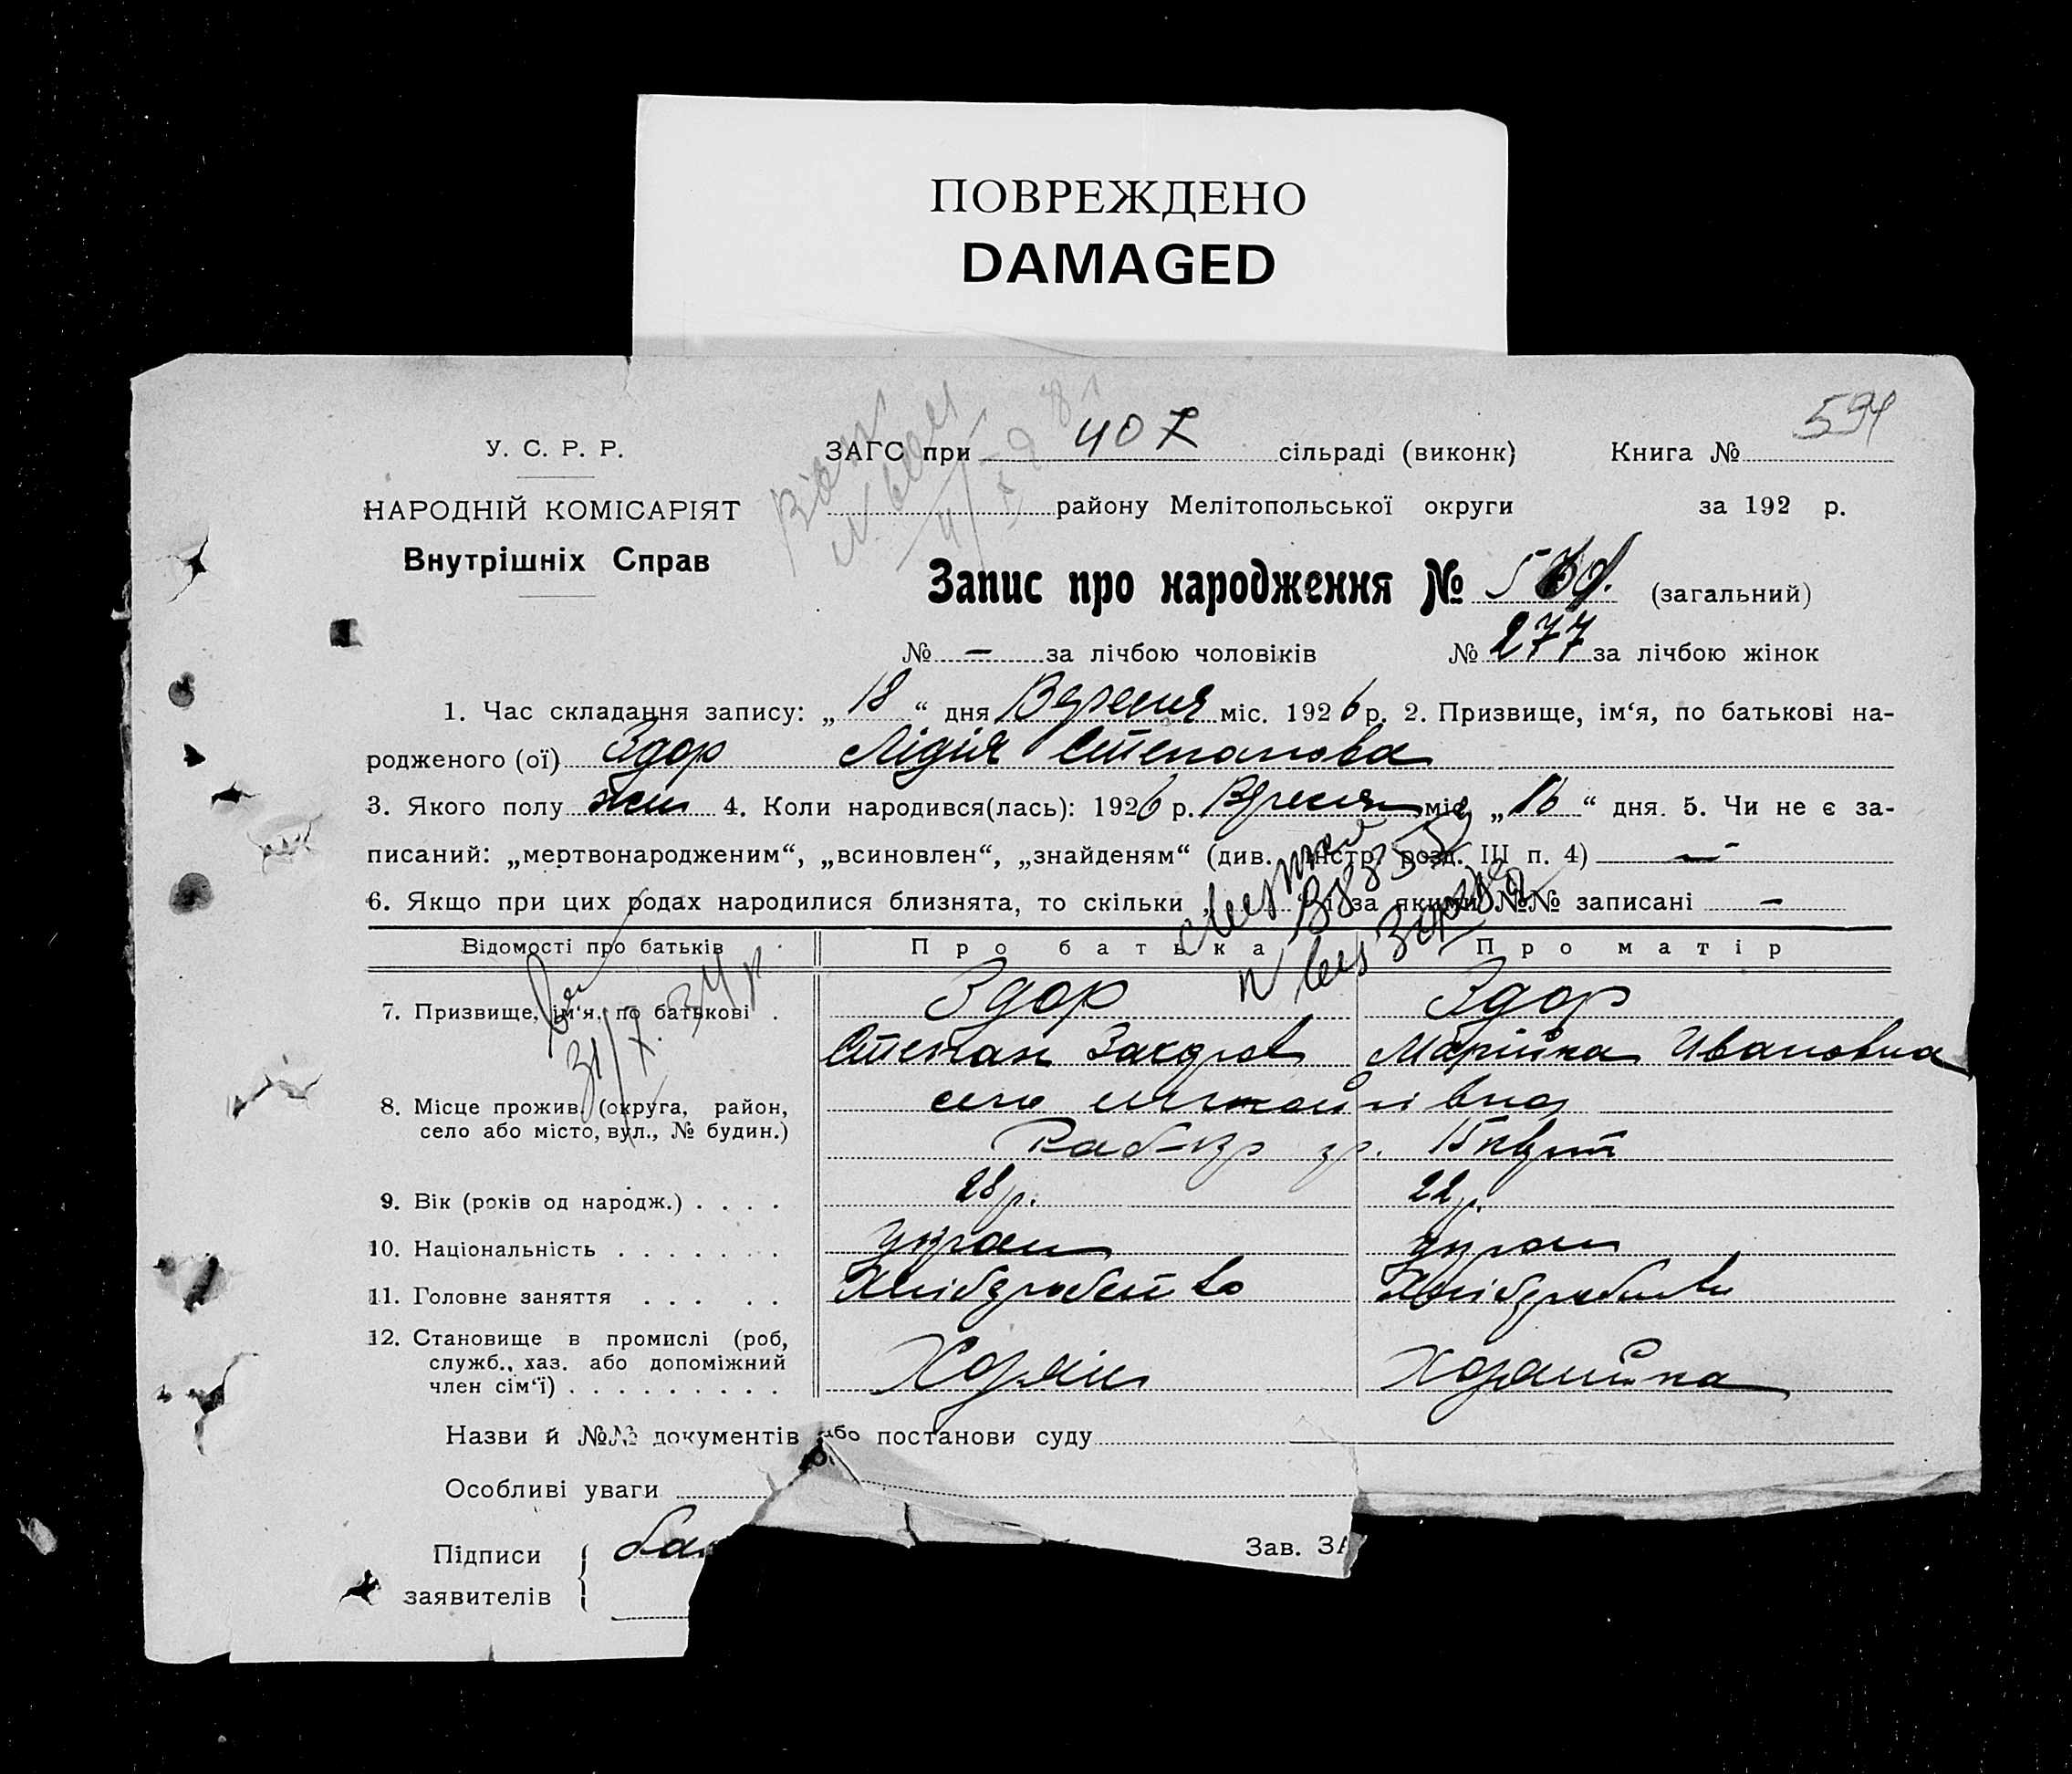 ПОВРЕЖДЕНО
DAMAGED
У. С. Р. Р.
НАРОДНІЙ КОМІСАРІЯТ
Внутрішніх Справ
ЗАГС при 407 сільраді (виконк)
Книга №
594
району Мелітопольської округи
за 192 р.
Запис про народження № (загальний)
№ — за лічбою чоловіків № 277 за лічбою жінок
1. Час складання запису: „18“ дня Вересня міс. 1926 р. 2. Призвище, ім‘я, по батькові на-
родженого (ої) Здор Лідія Степанова
3. Якого полу жин 4. Коли народився(лась): 1926 р. Вересня міс „16“ дня. 5. Чи не є за-
писаний: „мертвонародженим“, „всиновлен“, „знайденям“ (див. інстр. розд. III п. 4) —
6. Якщо при цих родах народилися близнята, то скільки і за якими №№ записані —
Відомості про батьків Про батька Про матір
7. Призвище, ім‘я, по батькові . Здор Здор
Степан Захаров Марійка Ивановна
31/X. 34 р
8. Місце прожив. (округа, район,
село або місто, вул., № будин.)
село
9. Вік (років од народж.) . . . . 28 р. 22 р.
10. Національність . . . . . . . украин украин
11. Головне заняття . . . . . Хліборобство Хліборобство
12. Становище в промислі (роб,
служб., хаз. або допоміжний
член сім‘ї) . . . . . . . . . Хозяин Хозяйка
Назви й №№ документів або постанови суду
Особливі уваги
Підписи
заявителів
Зав. ЗА